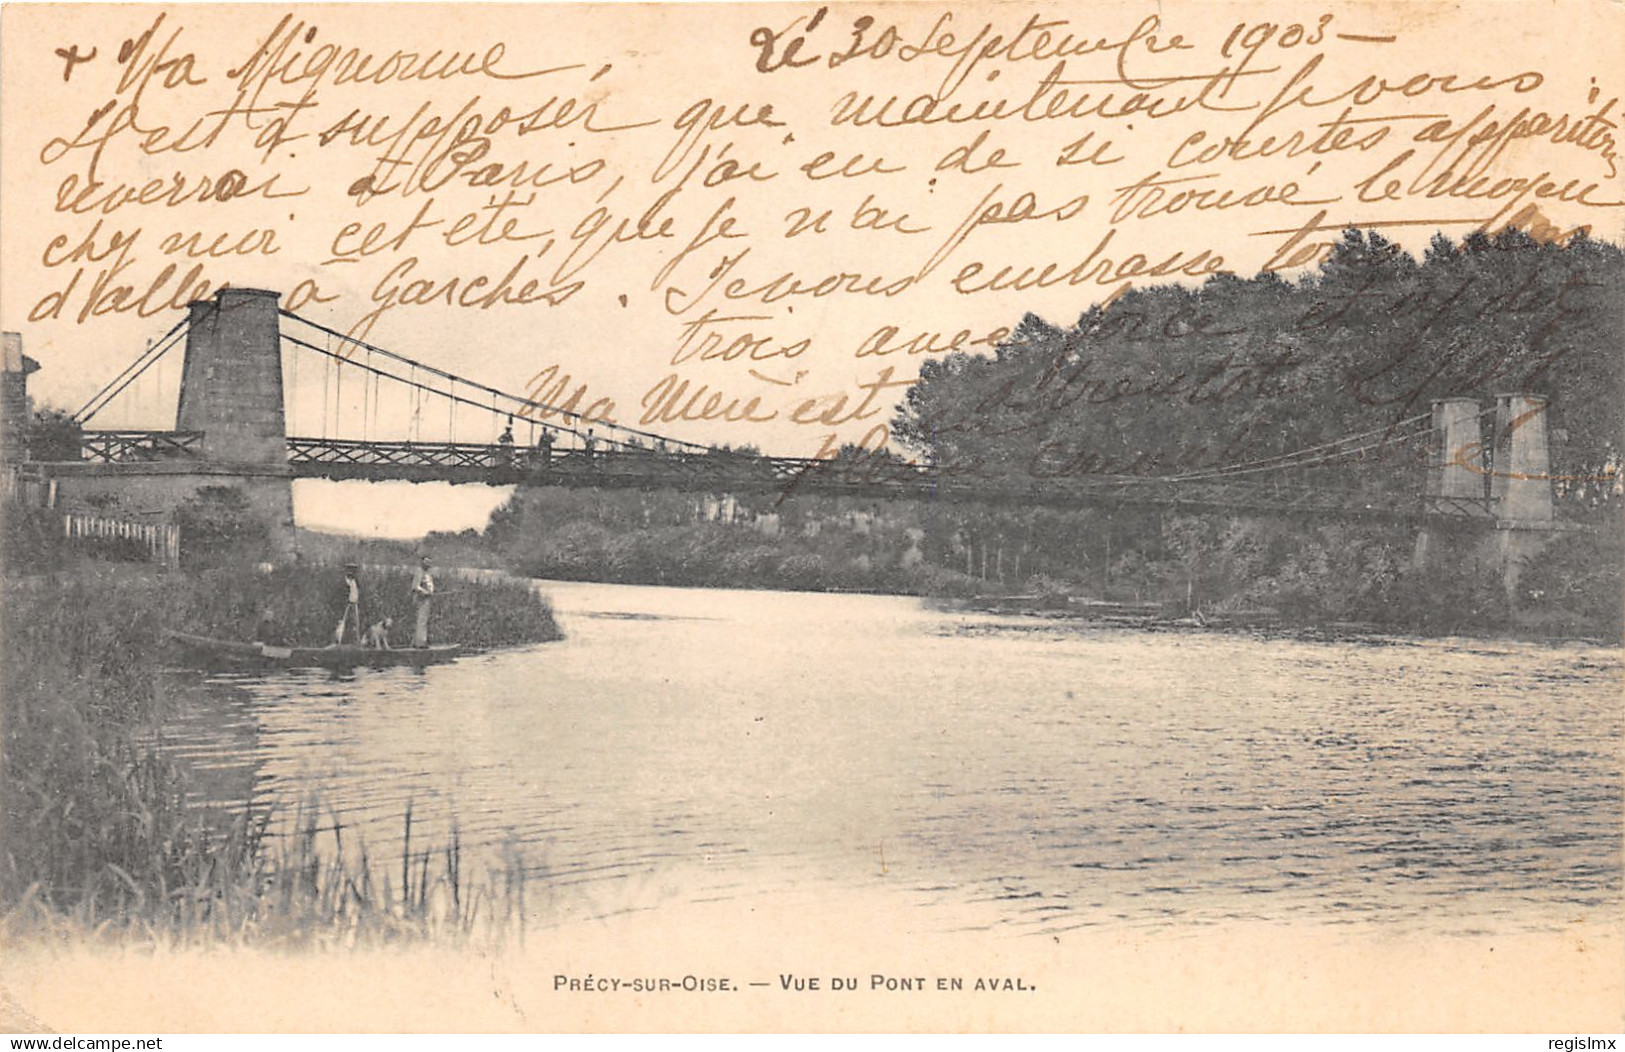 + Ma Mignonne, Le 30 Septembre 1903 —
Il est à supposer que maintenant je vous
reverrai à Paris, j'ai eu de si courtes apparitions
chez moi cet été, que je n'ai pas trouvé le moyen
d'aller à Garches. Je vous embrasse
trois avec force et
Ma Mère est
plein
PRÉCY-SUR-OISE. — VUE DU PONT EN AVAL.
www.delcampe.net
regislmx